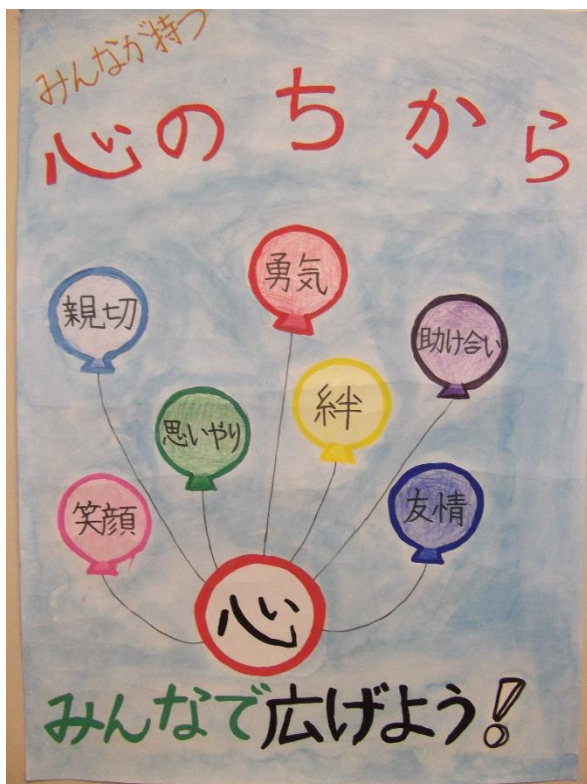 みんなが持つ
心のちから
勇気
親切
助け合い
絆
思いやり
笑顔
友情
心
みんなで広げよう!